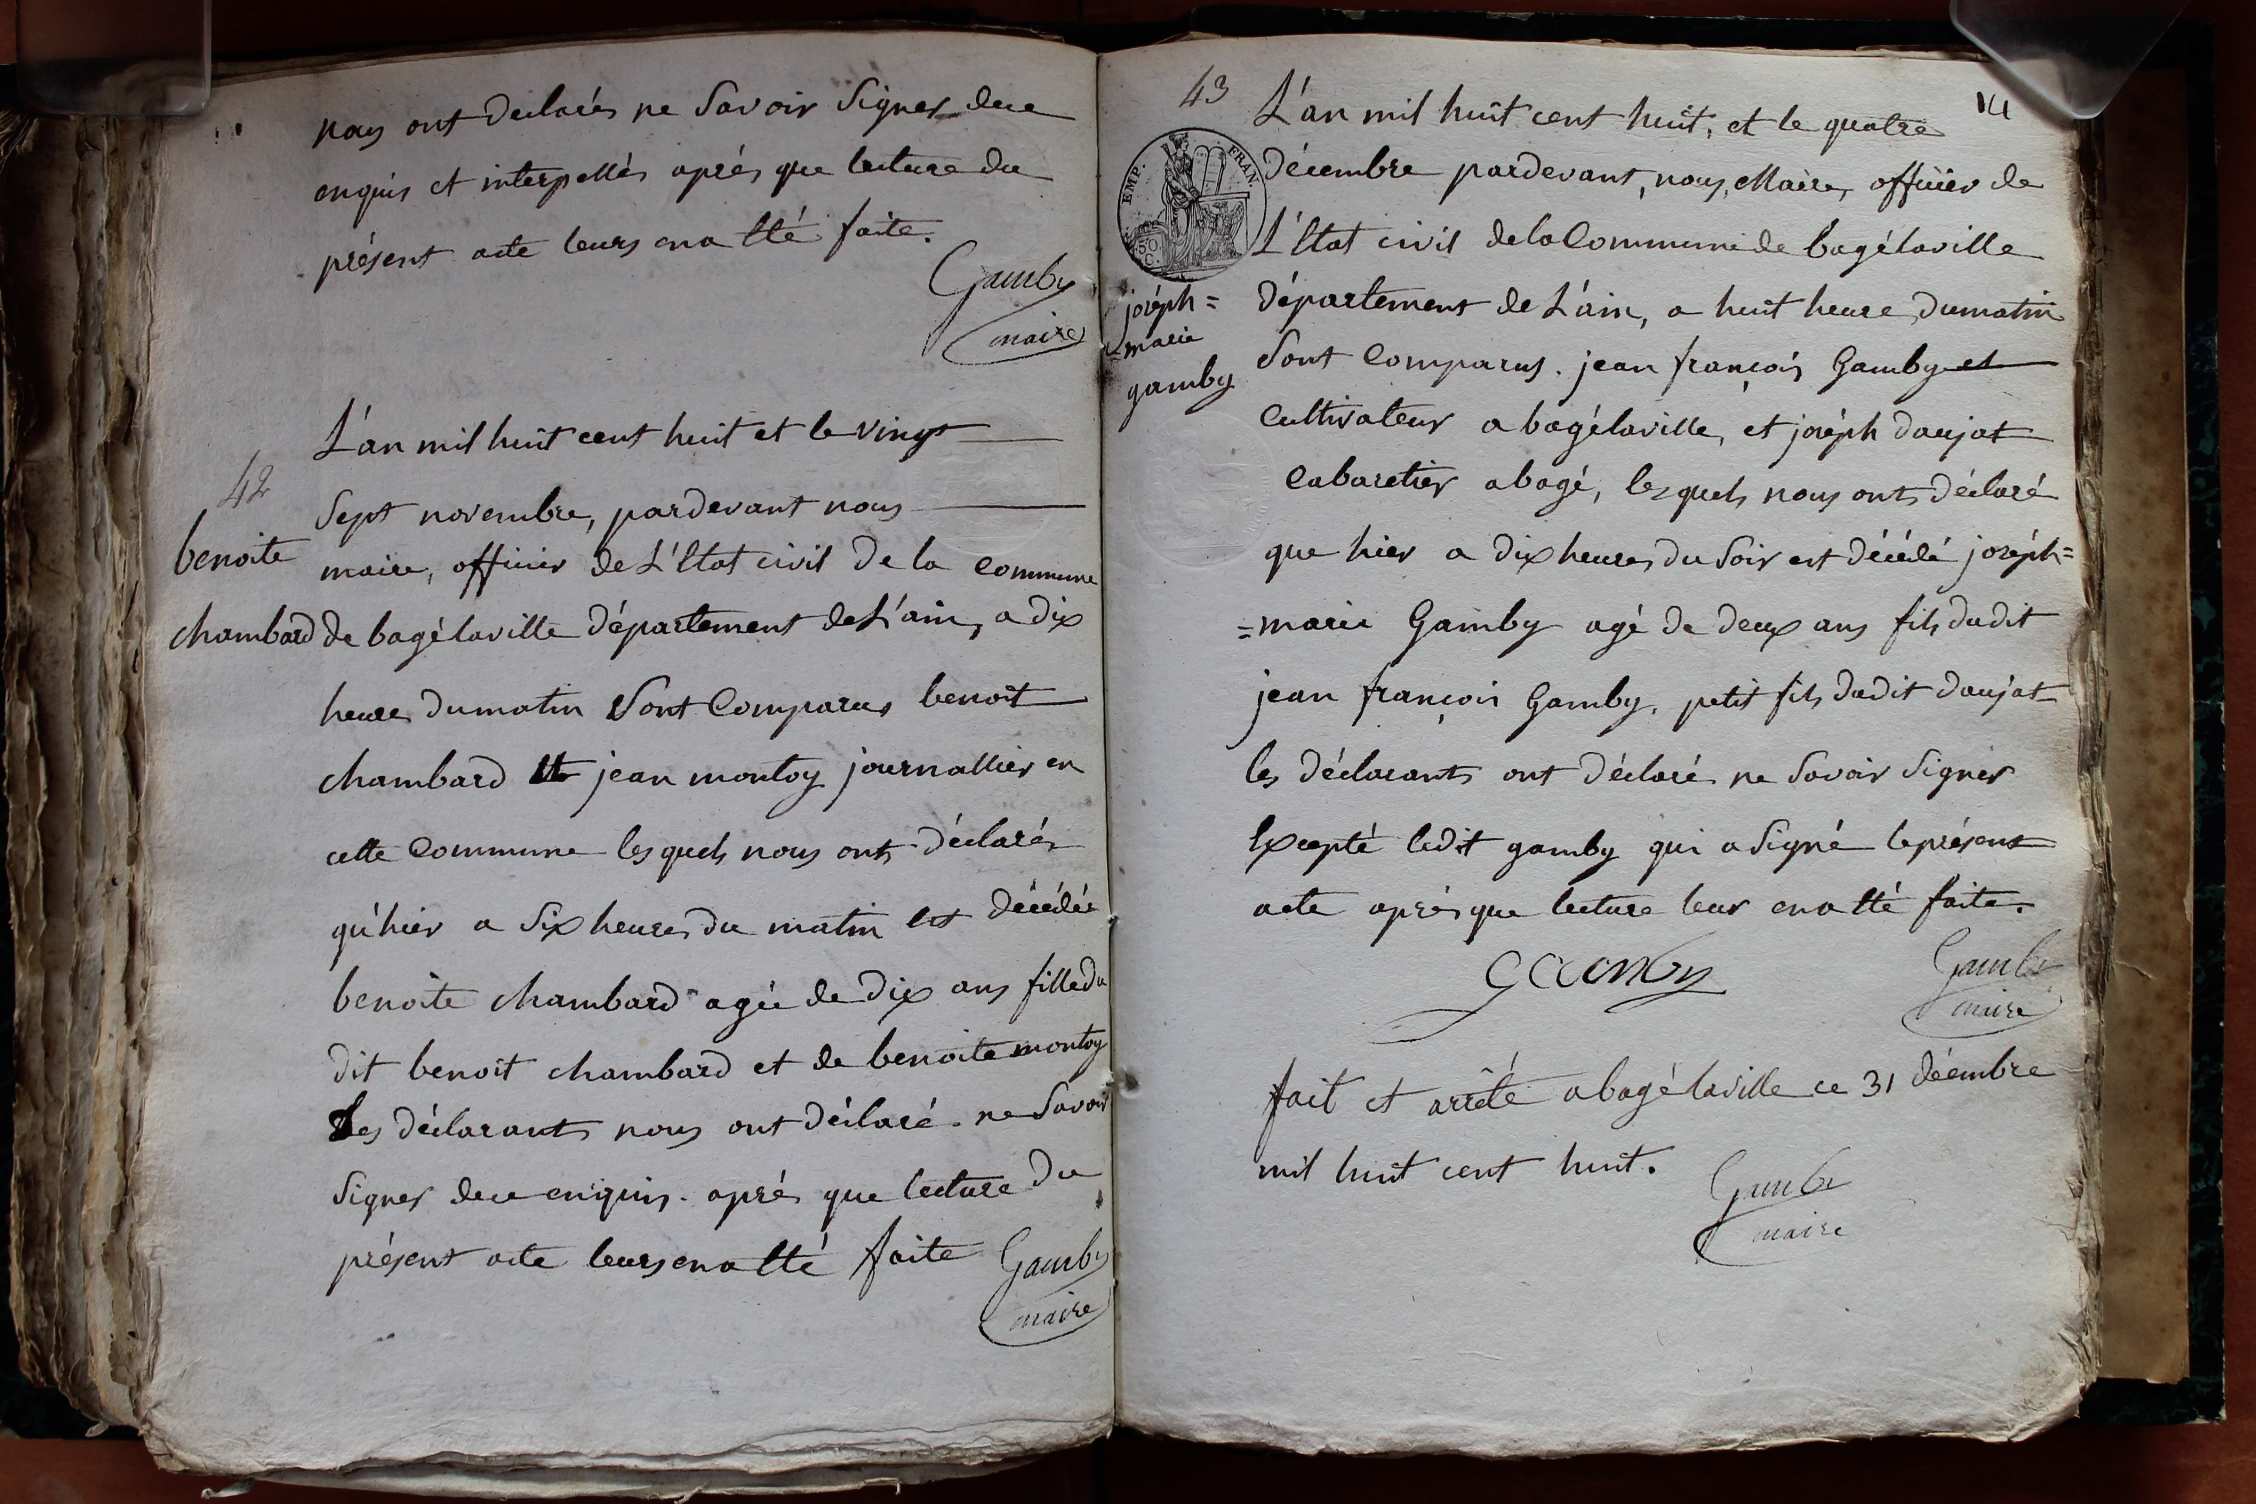 nous ont declarés ne Savoir Signer dece
enquis et interpellés aprés que lecture du
présent acte leurs en a été faite.
Gamby
maire
L'an mil huit cent huit et le vingt
42
Sept novembre, pardevant nous
benoite
maire, officier de L'Etat civil De la commune
chambard
de bagélaville Département de L'ain, a dix
heures du matin Sont Comparus benoit
chambard et jean montoy journallier en
cette Commune les quels nous ont déclarés
qu'hier a Six heures du matin est décédée
benoite chambard agée de dix ans fille du
dit benoit chambard et de benoite montoy
Les déclarants nous ont déclaré ne Savoir
Signer dece enquis. aprés que lecture Du
présent acte leurs en a été faite
Gamby
maire
43
14
L'an mil huit cent huit, et le quatre
EMP. FRAN.
50 C.
décembre pardevant, nous, Maire, officier de
L'Etat civil de la Commune de bagélaville
joséph=
=marie
gamby
département de L'ain, a huit heure du matin
Sont Comparus. jean françois Gamby et
Cultivateur a bagélaville, et joséph daujat
Cabaretier a bagé, lesquels nous ont déclaré
que hier a dix heures du Soir est décédé joséph=
=marie Gamby agé de deux ans fils dudit
jean françois Gamby, petit fils dudit daujat
les déclarants ont déclaré ne Savoir Signer
Excepté ledit gamby qui a Signé le présent
acte aprés que lecture leur en a été faite.
Gamby
Gamby
maire
fait et arrêté a bagélaville ce 31 décembre
mil huit cent huit.
Gamby
maire